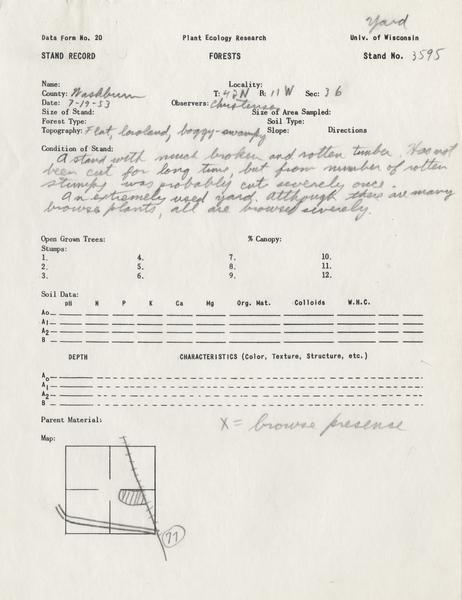 Yard
Data Form No. 20 Plant Ecology Research Univ. of Wisconsin
STAND RECORD FORESTS Stand No. 3595
Name: Locality:
County: Washburn T: 42N R: 11W Sec: 36
Date: 7-19-53 Observers: Christensen
Size of Stand: Size of Area Sampled:
Forest Type: Soil Type:
Topography: Flat, lowland, boggy-swampy Slope: Directions
Condition of Stand:
A stand with much broken and rotten timber. Has not
been cut for long time, but from number of rotten
stumps was probably cut severely once.
An extremely used yard. Although there are many
browse plants, all are browsed severely.
Open Grown Trees: % Canopy:
Stumps:
1. 4. 7. 10.
2. 5. 8. 11.
3. 6. 9. 12.
Soil Data:
pH N P K Ca Mg Org. Mat. Colloids W.H.C.
A₀
A₁
A₂
B
DEPTH CHARACTERISTICS (Color, Texture, Structure, etc.)
A₀
A₁
A₂
B
Parent Material:
X = browse presense
Map:
77